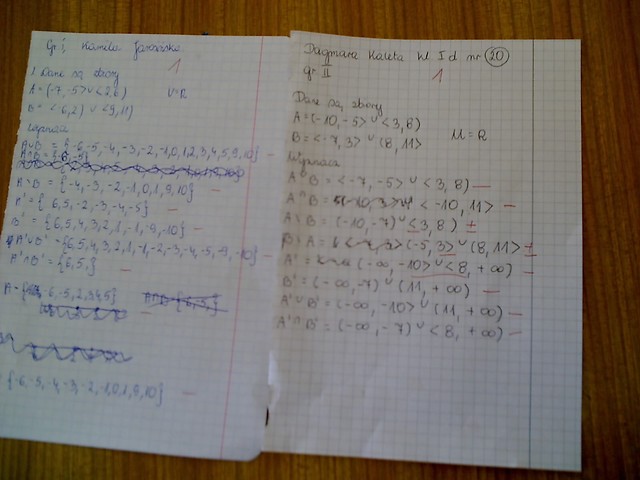 Gr. I, Kamila
1
1. Dane są zbiory
A = (-7, -5> ∪ <2,6) U=R
B = <-6,2) ∪ <9,11)
Wyznacz
A∪B = {-6,-5,-4,-3,-2,-1,0,1,2,3,4,5,9,10} —
A∩B = {-6,-5}
A\B = {-4,-3,-2,-1,0,1,9,10} —
A' = {6,5,-2,-3,-4,-5} —
B' = {6,5,4,3,2,1,-1,-9,-10} —
A'∪B' = {6,5,4,3,2,1,-1,-2,-3,-4,-5,-9,-10} —
A'∩B' = {6,5,} —
-6,-5,2,3,4,5}
{-6,-5,-4,-3,-2,-1,0,1,9,10} —
Dagmara Kaleta kl I d nr 20
gr. II
1
Dane są zbiory
A = (-10, -5> ∪ <3, 8)
B = <-7, 3> ∪ (8, 11> U = R
Wyznacz
A∪B = <-7, -5> ∪ <3, 8) —
A∩B = <-10, 11> —
A\B = (-10, -7) ∪ <3, 8) ±
B\A = (-5, 3> ∪ (8, 11> ±
A' = (-∞, -10> ∪ <8, +∞) —
B' = (-∞, -7) ∪ (11, +∞) —
A'∪B' = (-∞, -10> ∪ (11, +∞) —
A'∩B' = (-∞, -7) ∪ <8, +∞) —